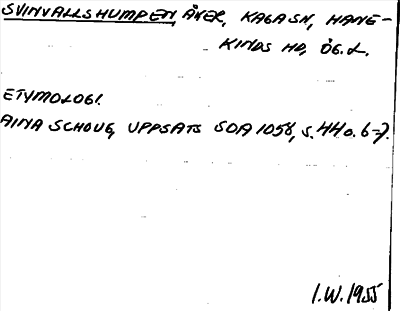 SVINVALLSHUMPEN, ÅKER, KAGA SN, HANE-
KINDS HD, ÖG.L.
ETYMOLOGI.
AINA SCHOUG, UPPSATS SOA 1058, s. 44 o. 67.
I.W. 1955